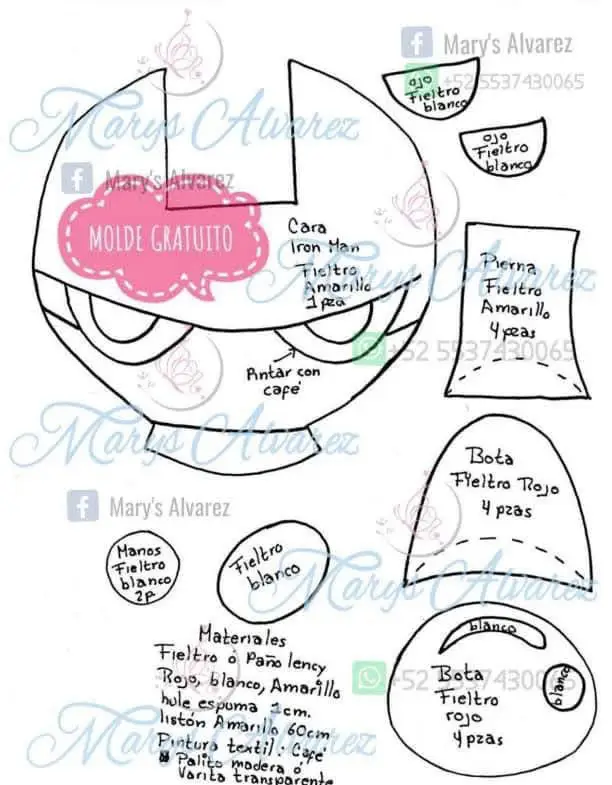 Mary's Alvarez
+52 5537430065
ojo
Fieltro
blanco
ojo
Fieltro
blanco
Marys Alvarez
Mary's Alvarez
MOLDE GRATUITO
Cara
Iron Man
Fieltro
Amarillo
1 pza
Marys Alvarez
Pierna
Fieltro
Amarillo
4 pzas
+52 5537430065
Pintar con
café
Marys Alvarez
Bota
Fieltro Rojo
4 pzas
Mary's Alvarez
Manos
Fieltro
blanco
2p
Fieltro
blanco
Marys Alvarez
Materiales
Fieltro ó Paño lency
Rojo, blanco, Amarillo
hule espuma 1cm.
listón Amarillo 60cm
Pintura textil. Café
Palito madera ó
Varita transparente
blanco
blanco
Bota
Fieltro
rojo
4 pzas
+52 5537430065
Marys Alvarez